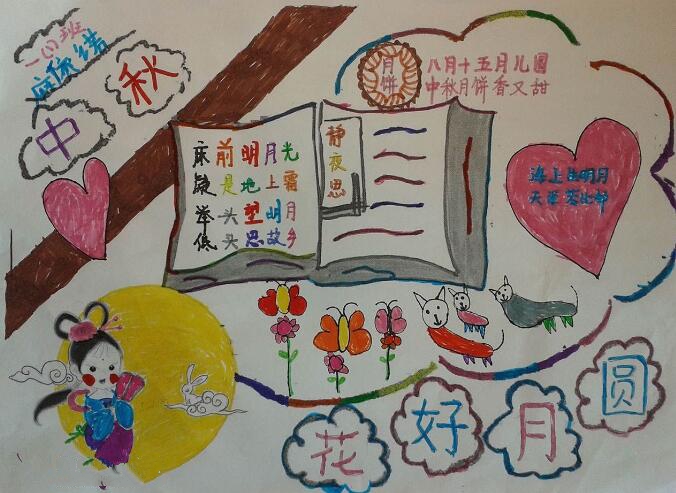 一(1)班
中秋
床前明月光
疑是地上霜
举头望明月
低头思故乡
静夜思
月饼
八月十五月儿圆
中秋月饼香又甜
海上升明月
天涯共此时
花好月圆